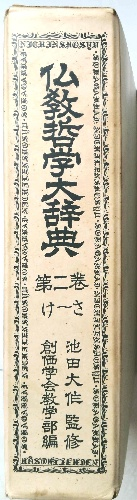 仏教哲学大辞典
第二巻
け〜さ
池田大作 監修
創価学会教学部編